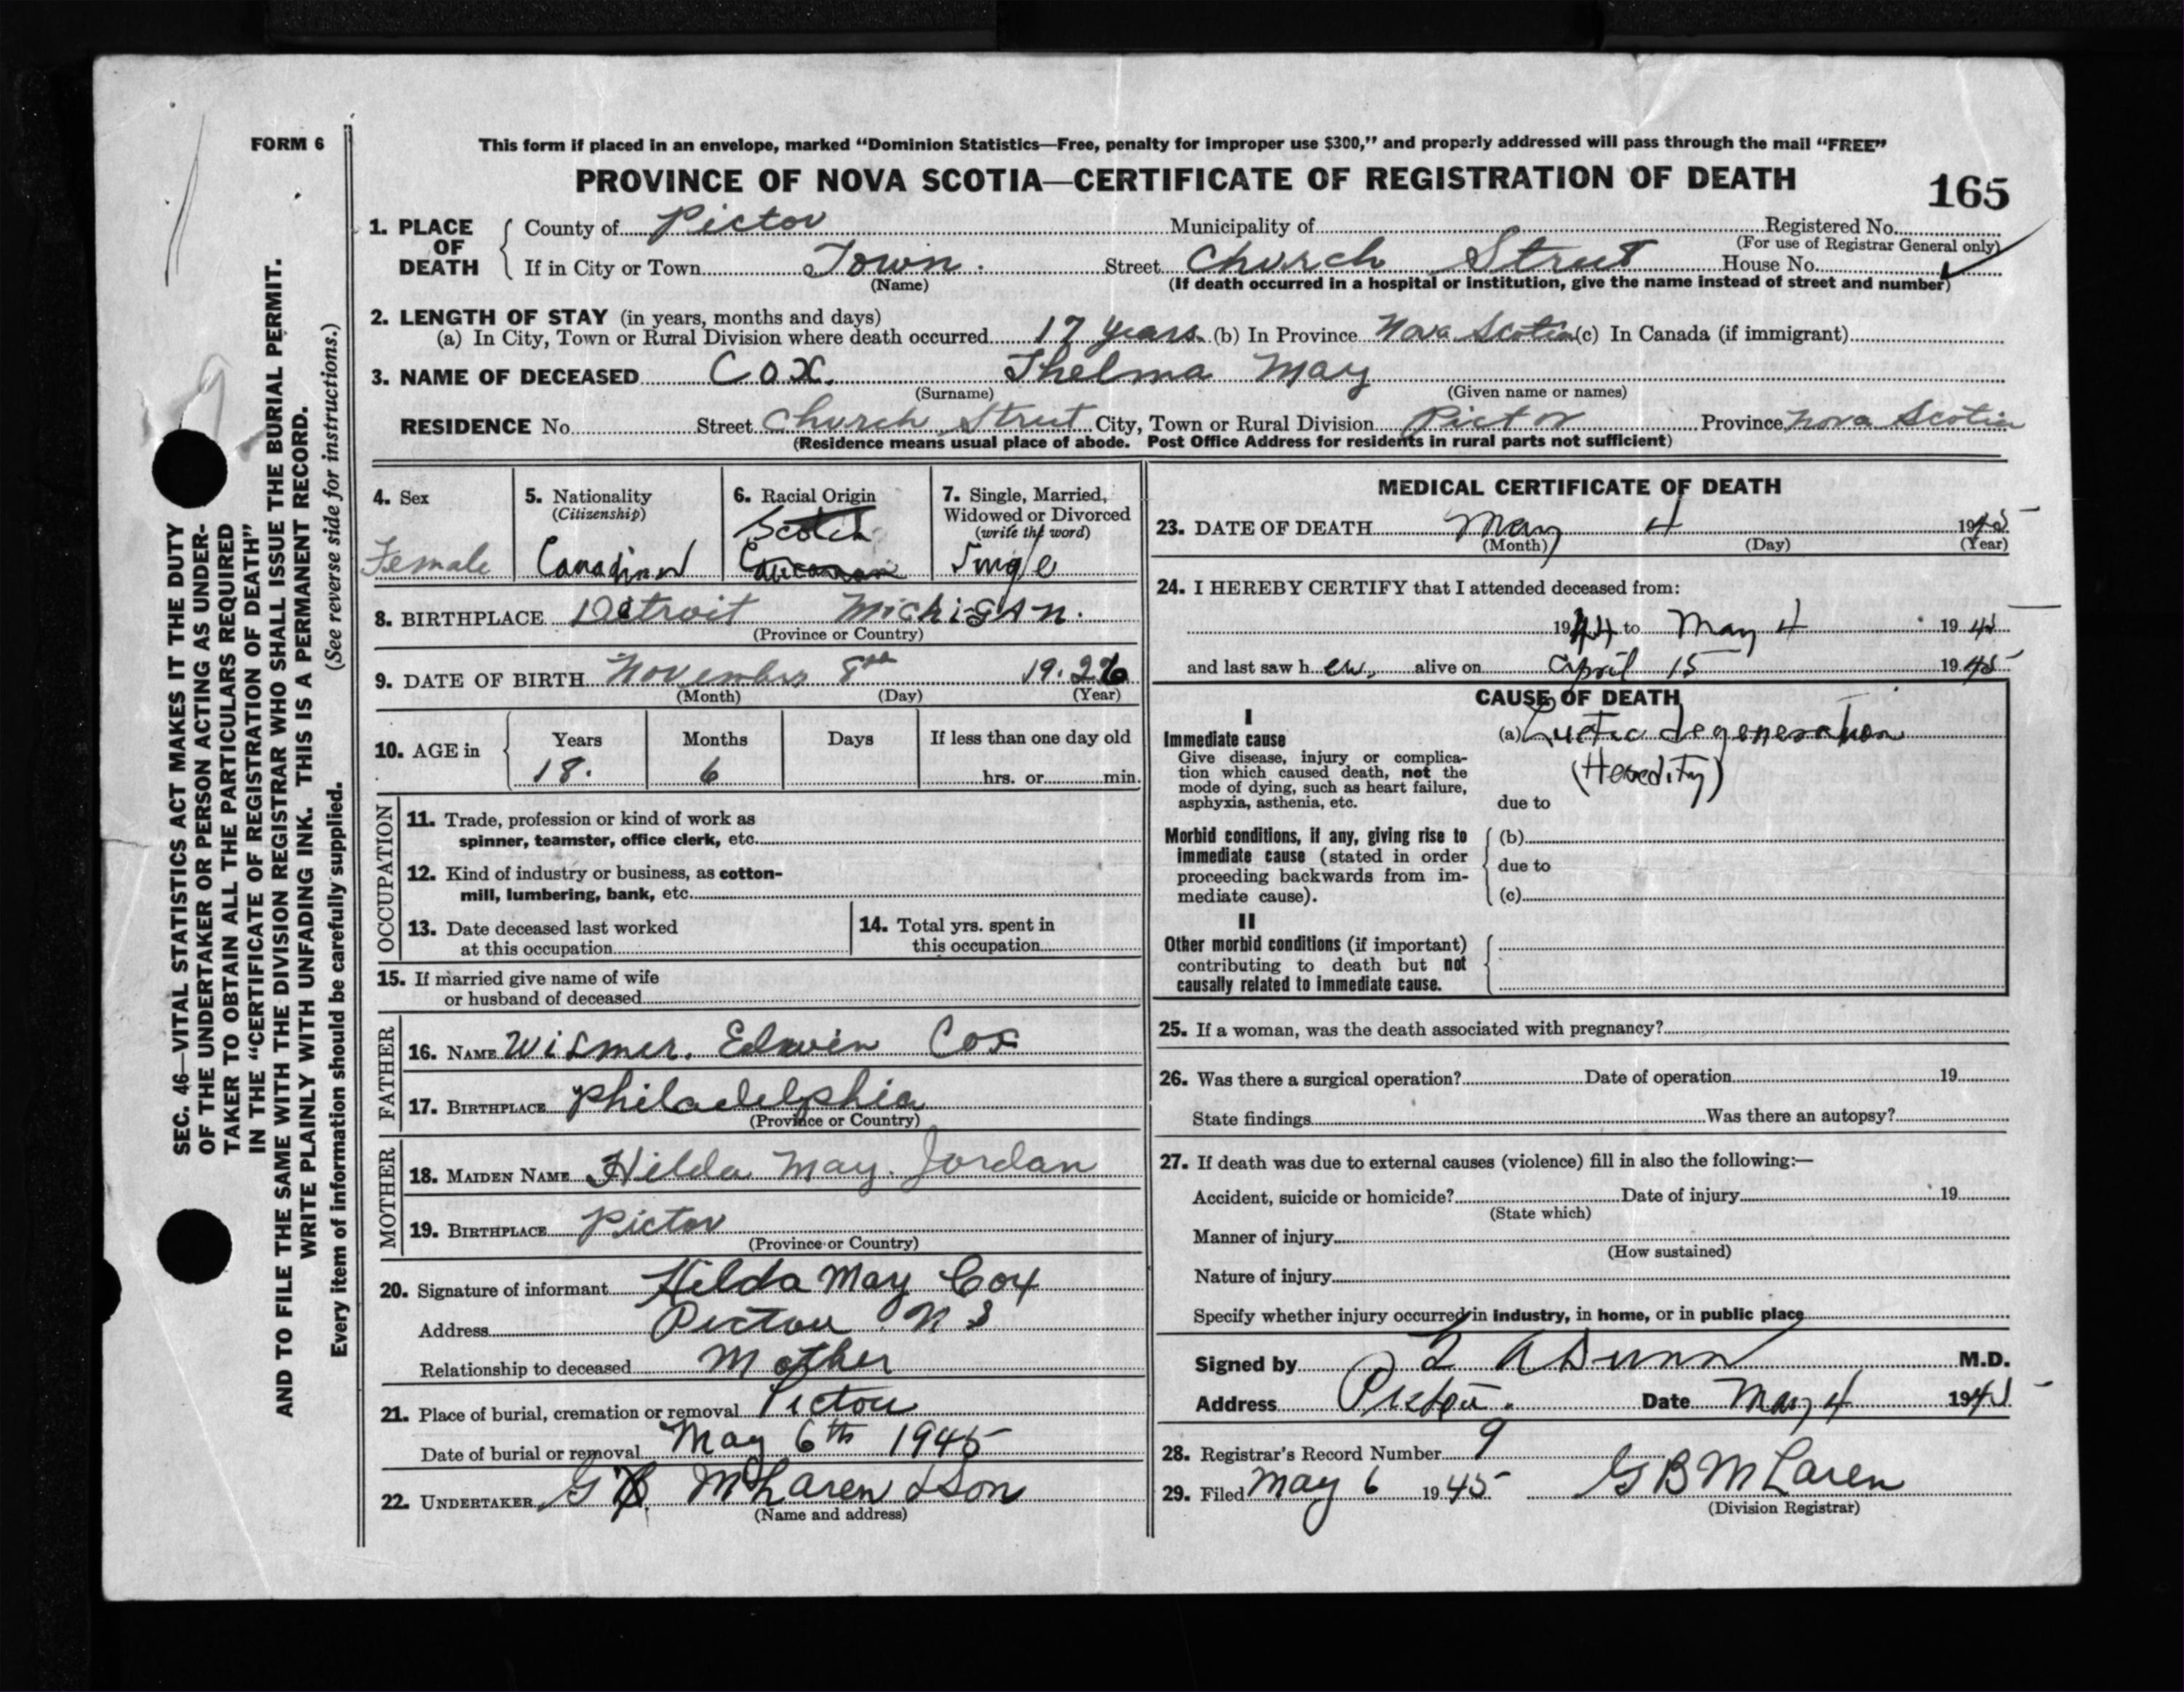 FORM 6
This form if placed in an envelope, marked “Dominion Statistics—Free, penalty for improper use $300,” and properly addressed will pass through the mail “FREE”
PROVINCE OF NOVA SCOTIA—CERTIFICATE OF REGISTRATION OF DEATH
165
1. PLACE OF DEATH
County of Pictou Municipality of Registered No.
(For use of Registrar General only)
If in City or Town Town. Street Church Street House No.
(Name) (If death occurred in a hospital or institution, give the name instead of street and number)
2. LENGTH OF STAY (in years, months and days)
(a) In City, Town or Rural Division where death occurred 17 years. (b) In Province Nova Scotia (c) In Canada (if immigrant)
3. NAME OF DECEASED Cox. Thelma May
(Surname) (Given name or names)
RESIDENCE No. Street Church Street City, Town or Rural Division Pictou Province Nova Scotia
(Residence means usual place of abode. Post Office Address for residents in rural parts not sufficient)
4. Sex
Female
5. Nationality
(Citizenship)
Canadian
6. Racial Origin
Scotch
Caucasian
7. Single, Married, Widowed or Divorced
(write the word)
Single
8. BIRTHPLACE Detroit Michigan.
(Province or Country)
9. DATE OF BIRTH November 8th 19.26
(Month) (Day) (Year)
10. AGE in
Years Months Days If less than one day old
18. 6 hrs. or min.
OCCUPATION
11. Trade, profession or kind of work as
spinner, teamster, office clerk, etc.
12. Kind of industry or business, as cotton-
mill, lumbering, bank, etc.
13. Date deceased last worked
at this occupation
14. Total yrs. spent in
this occupation
15. If married give name of wife
or husband of deceased
FATHER
16. NAME Wismer. Edwin Cox
17. BIRTHPLACE Philadelphia
(Province or Country)
MOTHER
18. MAIDEN NAME Hilda May. Jordan
19. BIRTHPLACE Pictou
(Province or Country)
20. Signature of informant Hilda May Cox
Address Pictou N S
Relationship to deceased Mother
21. Place of burial, cremation or removal Pictou
Date of burial or removal May 6th 1945
22. UNDERTAKER G B McLaren & Son
(Name and address)
MEDICAL CERTIFICATE OF DEATH
23. DATE OF DEATH May 4 1945
(Month) (Day) (Year)
24. I HEREBY CERTIFY that I attended deceased from:
1944 to May 4 1945
and last saw h er, alive on April 15 1945
CAUSE OF DEATH
I
Immediate cause
Give disease, injury or complica-
tion which caused death, not the
mode of dying, such as heart failure,
asphyxia, asthenia, etc.
(a) Luetic degeneration
(Heredity)
due to
Morbid conditions, if any, giving rise to
immediate cause (stated in order
proceeding backwards from im-
mediate cause).
(b)
due to
(c)
II
Other morbid conditions (if important)
contributing to death but not
causally related to immediate cause.
25. If a woman, was the death associated with pregnancy?
26. Was there a surgical operation? Date of operation 19
State findings Was there an autopsy?
27. If death was due to external causes (violence) fill in also the following:—
Accident, suicide or homicide? Date of injury 19
(State which)
Manner of injury
(How sustained)
Nature of injury
Specify whether injury occurred in industry, in home, or in public place
Signed by A Dunn M.D.
Address Pictou. Date May 4 1945
28. Registrar's Record Number 9
29. Filed May 6 1945 G B McLaren
(Division Registrar)
SEC. 46—VITAL STATISTICS ACT MAKES IT THE DUTY
OF THE UNDERTAKER OR PERSON ACTING AS UNDER-
TAKER TO OBTAIN ALL THE PARTICULARS REQUIRED
IN THE “CERTIFICATE OF REGISTRATION OF DEATH”
AND TO FILE THE SAME WITH THE DIVISION REGISTRAR WHO SHALL ISSUE THE BURIAL PERMIT.
WRITE PLAINLY WITH UNFADING INK. THIS IS A PERMANENT RECORD.
Every item of information should be carefully supplied. (See reverse side for instructions.)